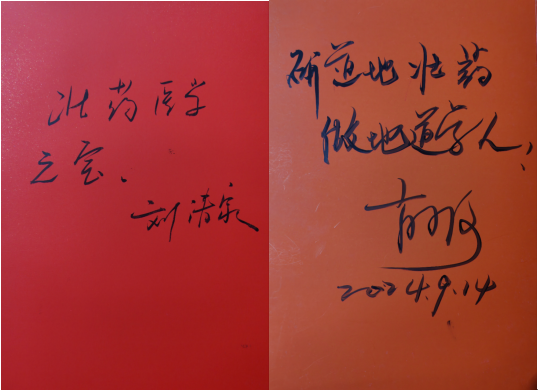 壮药医学
之宝、
刘清泉
研道地壮药
做地道学人！
2024.9.14